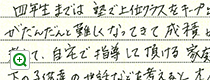 四年生までは塾で上位クラスをキープ
がだんだんと難しくなってきて成績と
して、自宅で指導して頂ける家庭
下の子供達の世話などを考えると